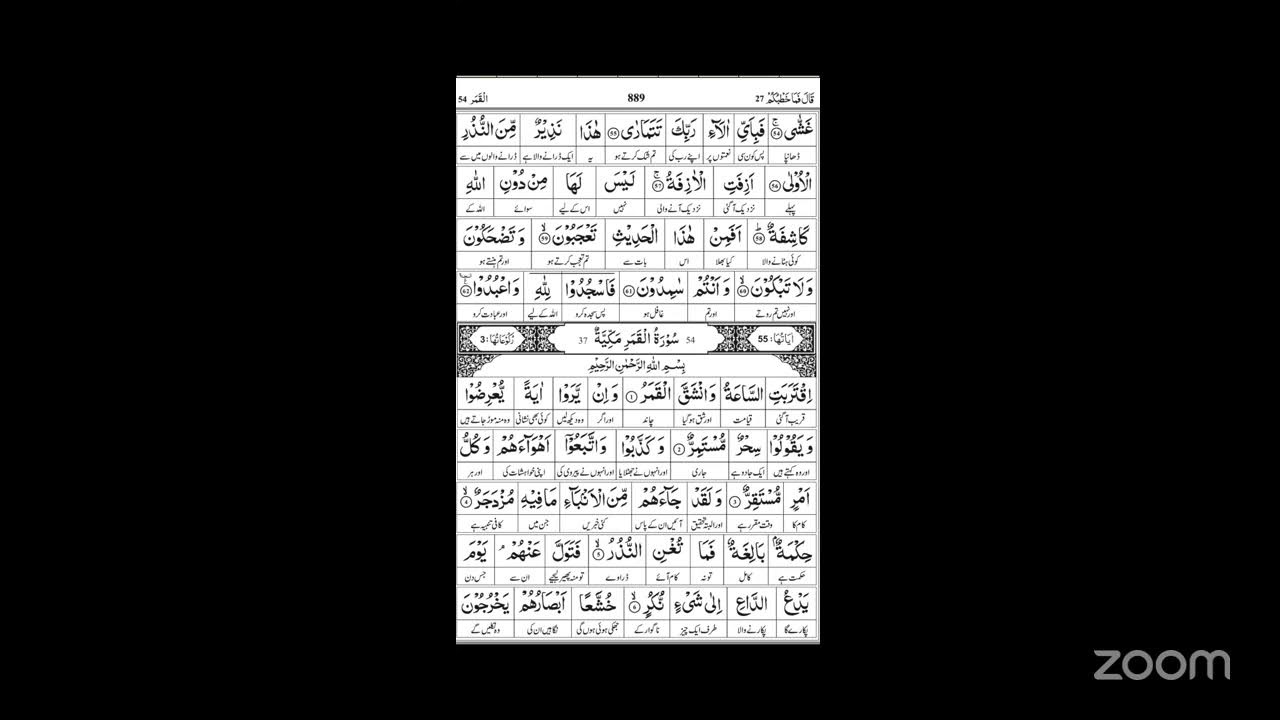 قَالَ فَمَا خَطْبُكُمْ 27 889 اَلْقَمَر 54
غَشّٰى ۚ۝54 فَبِاَىِّ اٰلَآءِ رَبِّكَ تَتَمَارٰى ۝55 هٰذَا نَذِيْرٌ مِّنَ النُّذُرِ
ڈھانپا پس کون سی نعمتوں پر اپنے رب کی تم شک کرتے ہو یہ ایک ڈرانے والا ہے ڈرانے والوں میں سے
الْاُوْلٰى ۝56 اَزِفَتِ الْاٰزِفَةُ ۚ۝57 لَيْسَ لَهَا مِنْ دُوْنِ اللّٰهِ
پہلے نزدیک آگئی نزدیک آنے والی نہیں اس کے لیے سوائے اللہ کے
كَاشِفَةٌ ؕ۝58 اَفَمِنْ هٰذَا الْحَدِيْثِ تَعْجَبُوْنَ ۙ۝59 وَ تَضْحَكُوْنَ
کوئی ہٹانے والا کیا بھلا اس بات سے تم تعجب کرتے ہو اور تم ہنستے ہو
وَ لَا تَبْكُوْنَ ۙ۝60 وَ اَنْتُمْ سٰمِدُوْنَ ۝61 فَاسْجُدُوْا لِلّٰهِ وَ اعْبُدُوْا ۝62
اور نہیں تم روتے اور تم غافل ہو پس سجدہ کرو اللہ کے لیے اور عبادت کرو
اٰيَاتُهَا: 55 54 سُوْرَةُ الْقَمَرِ مَكِّيَّةٌ 37 رُكُوْعَاتُهَا: 3
بِسْمِ اللّٰهِ الرَّحْمٰنِ الرَّحِيْمِ
اِقْتَرَبَتِ السَّاعَةُ وَ انْشَقَّ الْقَمَرُ ۝1 وَ اِنْ يَّرَوْا اٰيَةً يُّعْرِضُوْا
قریب آگئی قیامت اور شق ہو گیا چاند اور اگر وہ دیکھ لیں کوئی بھی نشانی وہ منہ موڑ جاتے ہیں
وَ يَقُوْلُوْا سِحْرٌ مُّسْتَمِرٌّ ۝2 وَ كَذَّبُوْا وَ اتَّبَعُوْٓا اَهْوَآءَهُمْ وَ كُلُّ
اور وہ کہتے ہیں ایک جادو ہے جاری اور انہوں نے جھٹلایا اور انہوں نے پیروی کی اپنی خواہشات کی اور ہر
اَمْرٍ مُّسْتَقِرٌّ ۝3 وَ لَقَدْ جَآءَهُمْ مِّنَ الْاَنْۢبَآءِ مَا فِيْهِ مُزْدَجَرٌ ۙ۝4
کام کا وقت مقرر ہے اور البتہ تحقیق آئیں ان کے پاس کئی خبریں جن میں کافی تنبیہ ہے
حِكْمَةٌۢ بَالِغَةٌ فَمَا تُغْنِ النُّذُرُ ۙ۝5 فَتَوَلَّ عَنْهُمْ ۘ يَوْمَ
حکمت ہے کامل تو نہ کام آئے ڈراوے تو منہ پھیر لیجیے ان سے جس دن
يَدْعُ الدَّاعِ اِلٰى شَیْءٍ نُّكُرٍ ۙ۝6 خُشَّعًا اَبْصَارُهُمْ يَخْرُجُوْنَ
پکارے گا پکارنے والا طرف ایک چیز ناگوار کے جھکی ہوئی ہوں گی نگاہیں ان کی وہ نکلیں گے
zoom